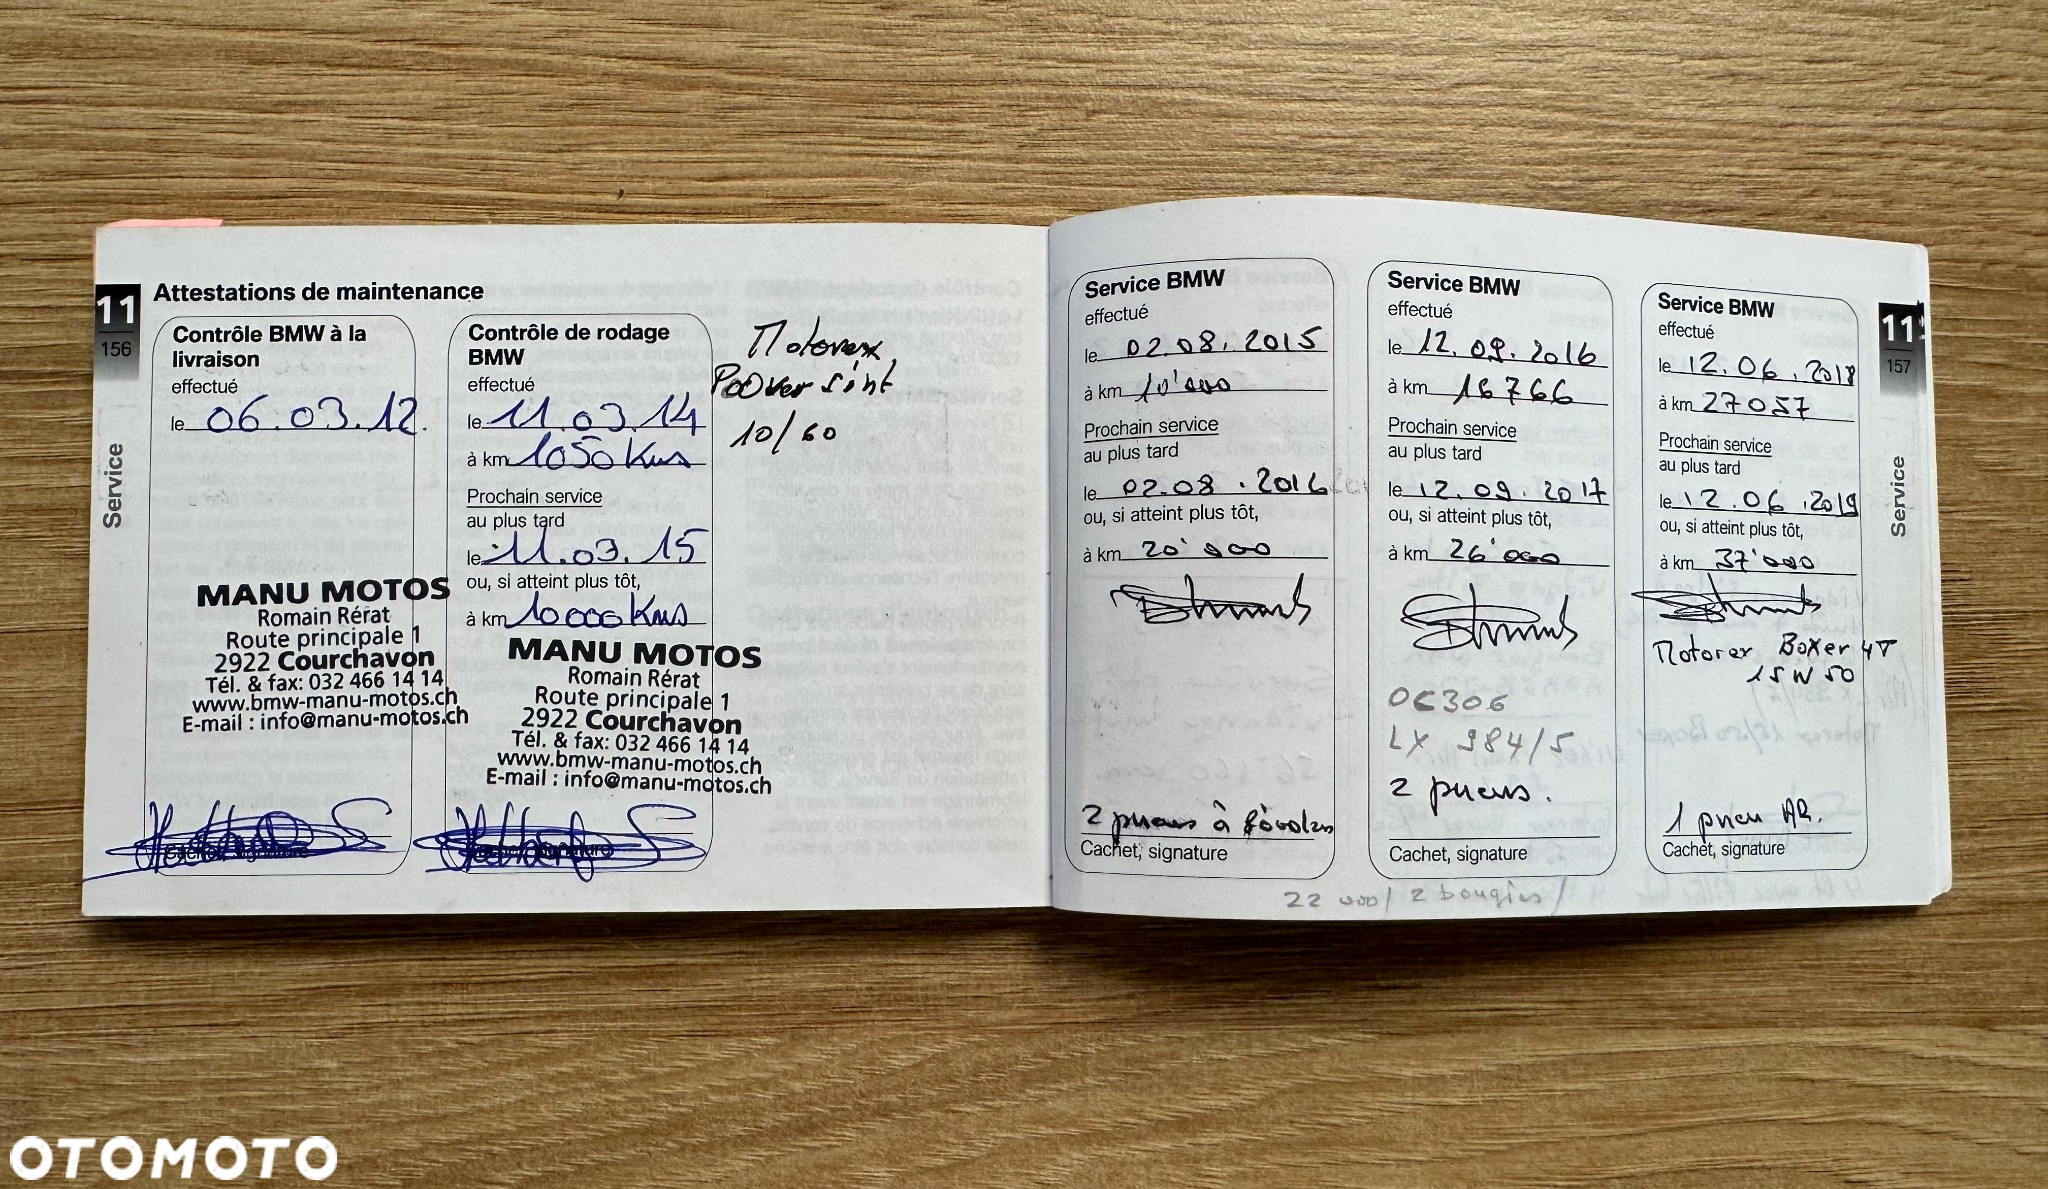 11
156
Service
Attestations de maintenance
Contrôle BMW à la
livraison
effectué
le 06.03.12.
MANU MOTOS
Romain Rérat
Route principale 1
2922 Courchavon
Tél. & fax: 032 466 14 14
www.bmw-manu-motos.ch
E-mail : info@manu-motos.ch
Cachet, signature
Contrôle de rodage
BMW
effectué
le 11.03.14
à km 1050 Kms
Prochain service
au plus tard
le 11.03.15
ou, si atteint plus tôt,
à km 10000 Kms
MANU MOTOS
Romain Rérat
Route principale 1
2922 Courchavon
Tél. & fax: 032 466 14 14
www.bmw-manu-motos.ch
E-mail : info@manu-motos.ch
Motorex
10/60
Service BMW
effectué
le 02.08.2015
à km 10'000
Prochain service
au plus tard
le 02.08.2016
ou, si atteint plus tôt,
à km 20'000
2 pneus à
Cachet, signature
Service BMW
effectué
le 12.09.2016
à km 16766
Prochain service
au plus tard
le 12.09.2017
ou, si atteint plus tôt,
à km 26'000
OC306
LX 984/5
2 pneus.
Cachet, signature
22 000/ 2 bougies/
Service BMW
effectué
le 12.06.2018
à km 27057
Prochain service
au plus tard
le 12.06.2019
ou, si atteint plus tôt,
à km 37'000
Motorex Boxer 4T
15W50
1 pneu AR.
Cachet, signature
11
157
Service
OTOMOTO